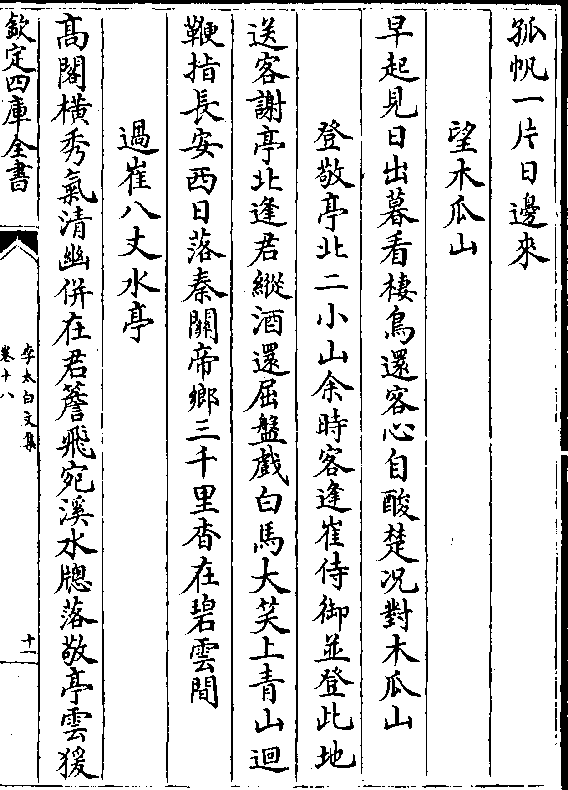 孤帆一片日邊來
望木瓜山
早起見日出暮看棲鳥還客心自酸楚况對木瓜山
登敬亭北二小山余時客逢崔侍御並登此地
送客謝亭北逢君縱酒還屈盤戲白馬大笑上青山迴
鞭指長安西日落秦關帝鄉三千里杳在碧雲間
過崔八丈水亭
髙閣横秀氣清幽併在君簷飛宛溪水牎落敬亭雲猨
欽定四庫全書
李太白文集
卷十八
十一